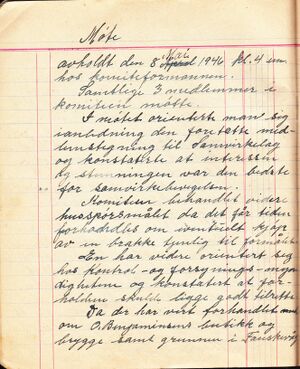 Møte
avholdt den 8 Mai April 1946 kl. 4 em
hos komiteformannen.
Samtlige 3 medlemmer i
komiteen møtte.
I møtet orienterte man sig
ianledning den foretatte med-
lemstegning til Samvirkelag
og konstaterte at interessen
og stemningen var den bedste
for samvirkebevegelsen.
Komiteen behandlet videre
husspørsmålet da det før tiden
forhandles om eventuelt kjøp
av en brakke tjenlig til formålet.
En har videre orientert seg
hos Kontrol- og forsynings- myn-
dighetene og konstatert at for-
holdene skulde ligge godt tilrette.
Da der har vært forhandlet
om O. Benjaminsens butikk og
brygge samt grunnen i Fauskevåg